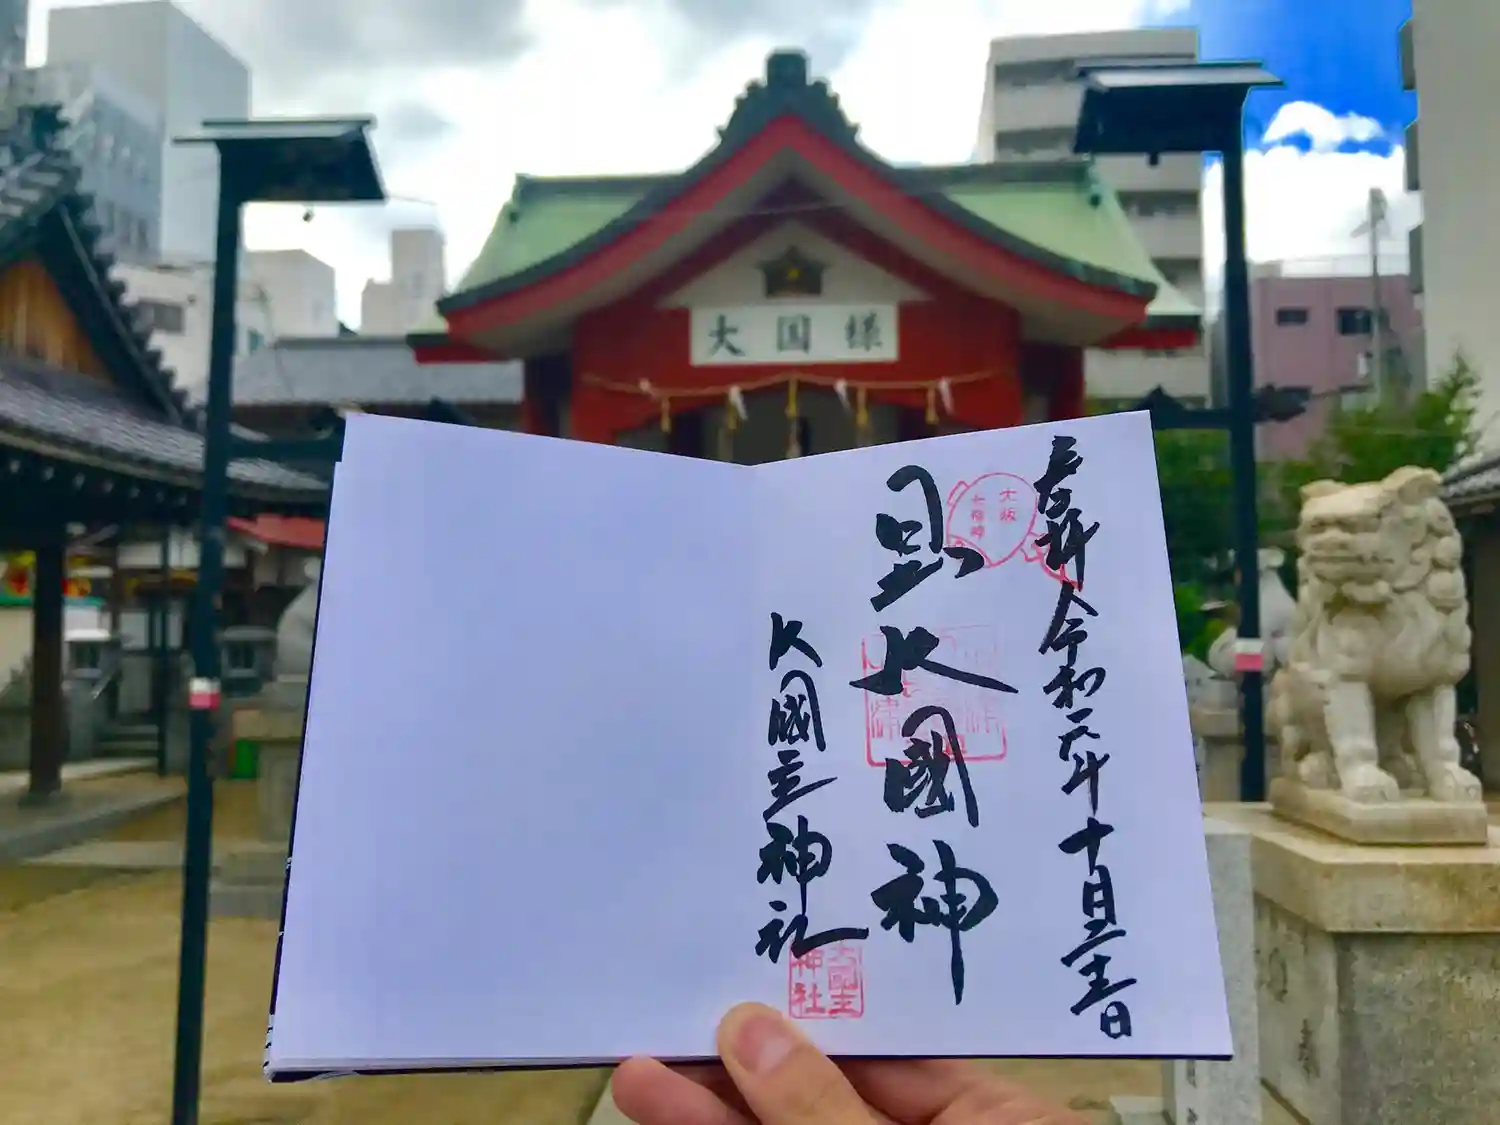 大国様
奉拝 令和元年十月二十 日
大阪
七福神
日出大國神
大國主神社
大國主
神社